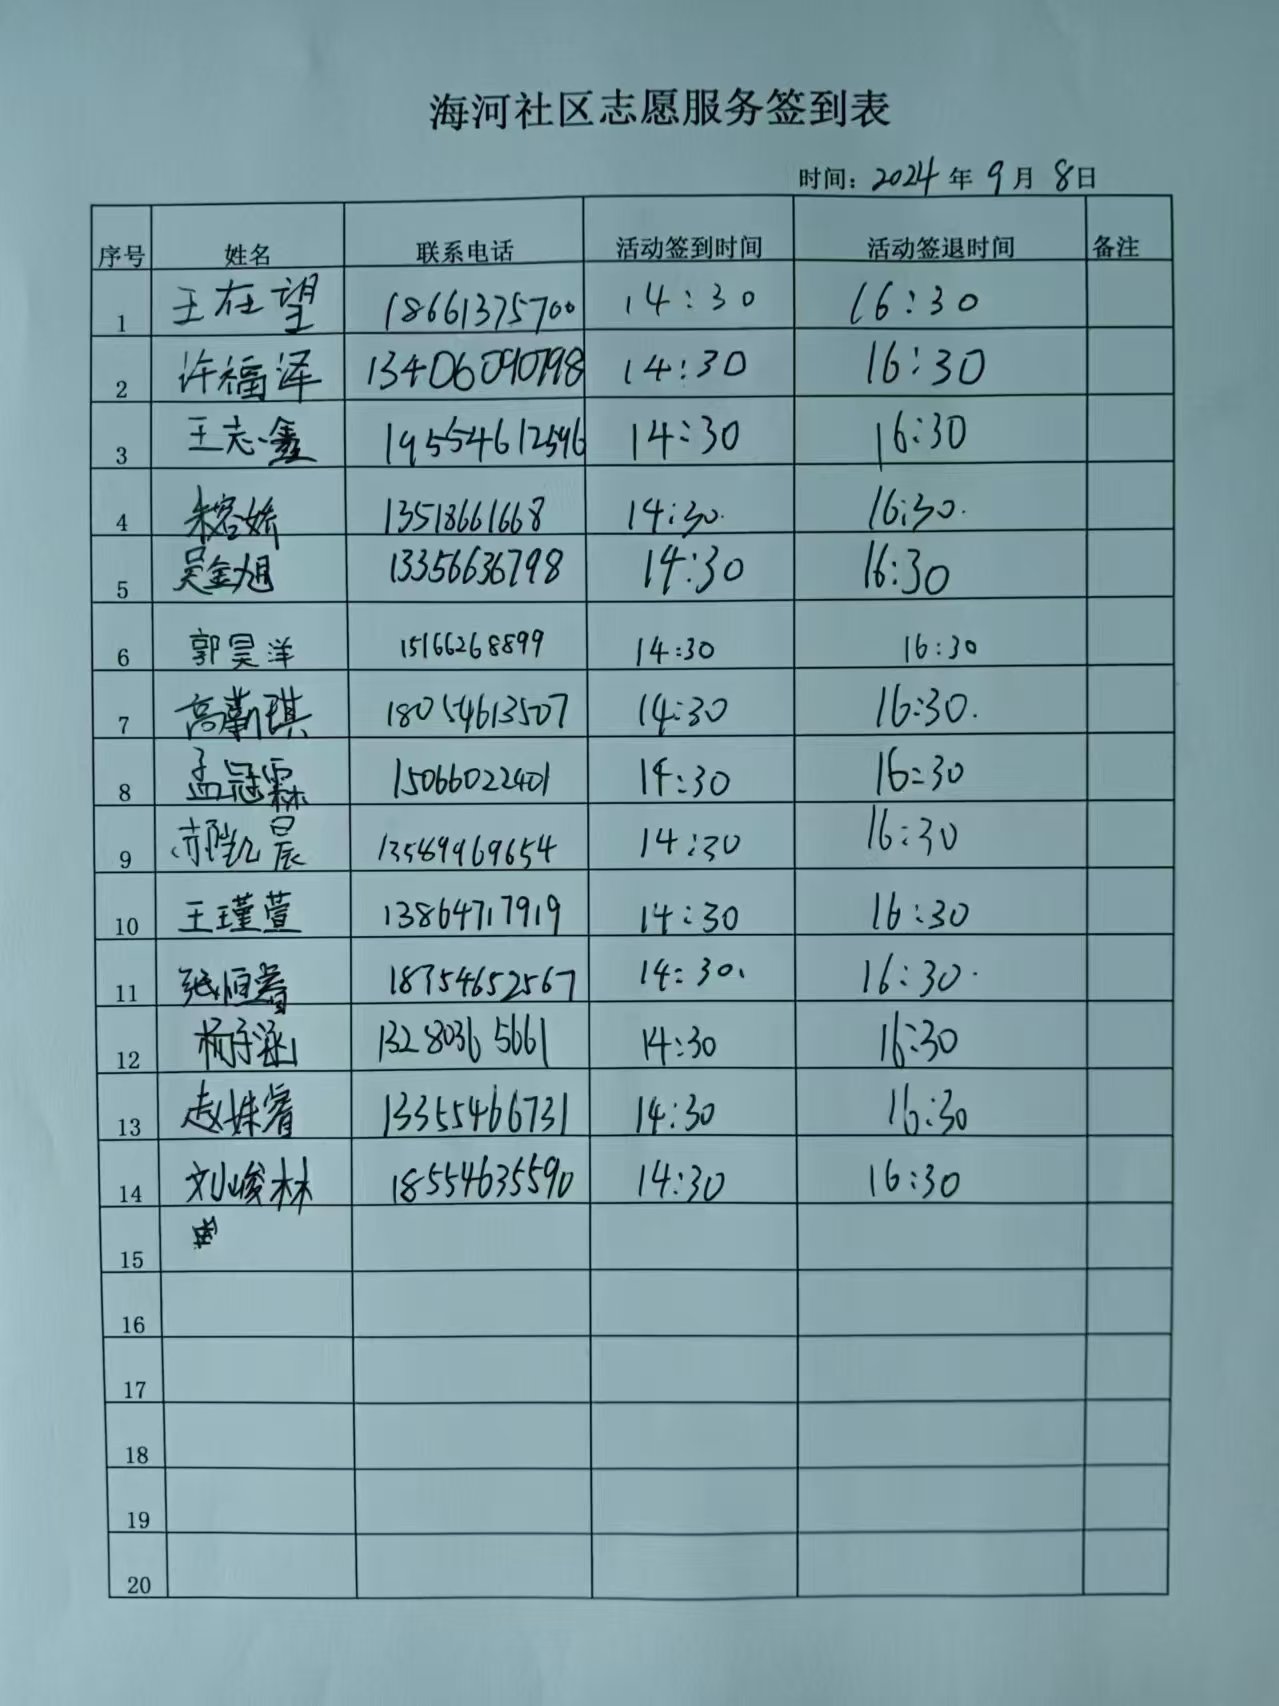 海河社区志愿服务签到表
时间：2024 年 9 月 8 日
序号 姓名 联系电话 活动签到时间 活动签退时间 备注
1 王在望 18661375700 14:30 16:30
2 许福泽 13406090798 14:30 16:30
3 王志鑫 19554612596 14:30 16:30
4 朱容娇 13518661668 14:30. 16:30.
5 吴金旭 13356636798 14:30 16:30
6 郭昊洋 15166268899 14:30 16:30
7 高蕲琪 18054613507 14:30 16:30.
8 孟冠霖 15066022401 14:30 16:30
9 郝凯晨 13589969654 14:30 16:30
10 王瑾萱 13864717919 14:30 16:30
11 张恒 18354652567 14:30. 16:30.
12 杨子涵 13280365661 14:30 16:30
13 赵姝睿 13355466731 14:30 16:30
14 刘峻林 18554635590 14:30 16:30
15
16
17
18
19
20